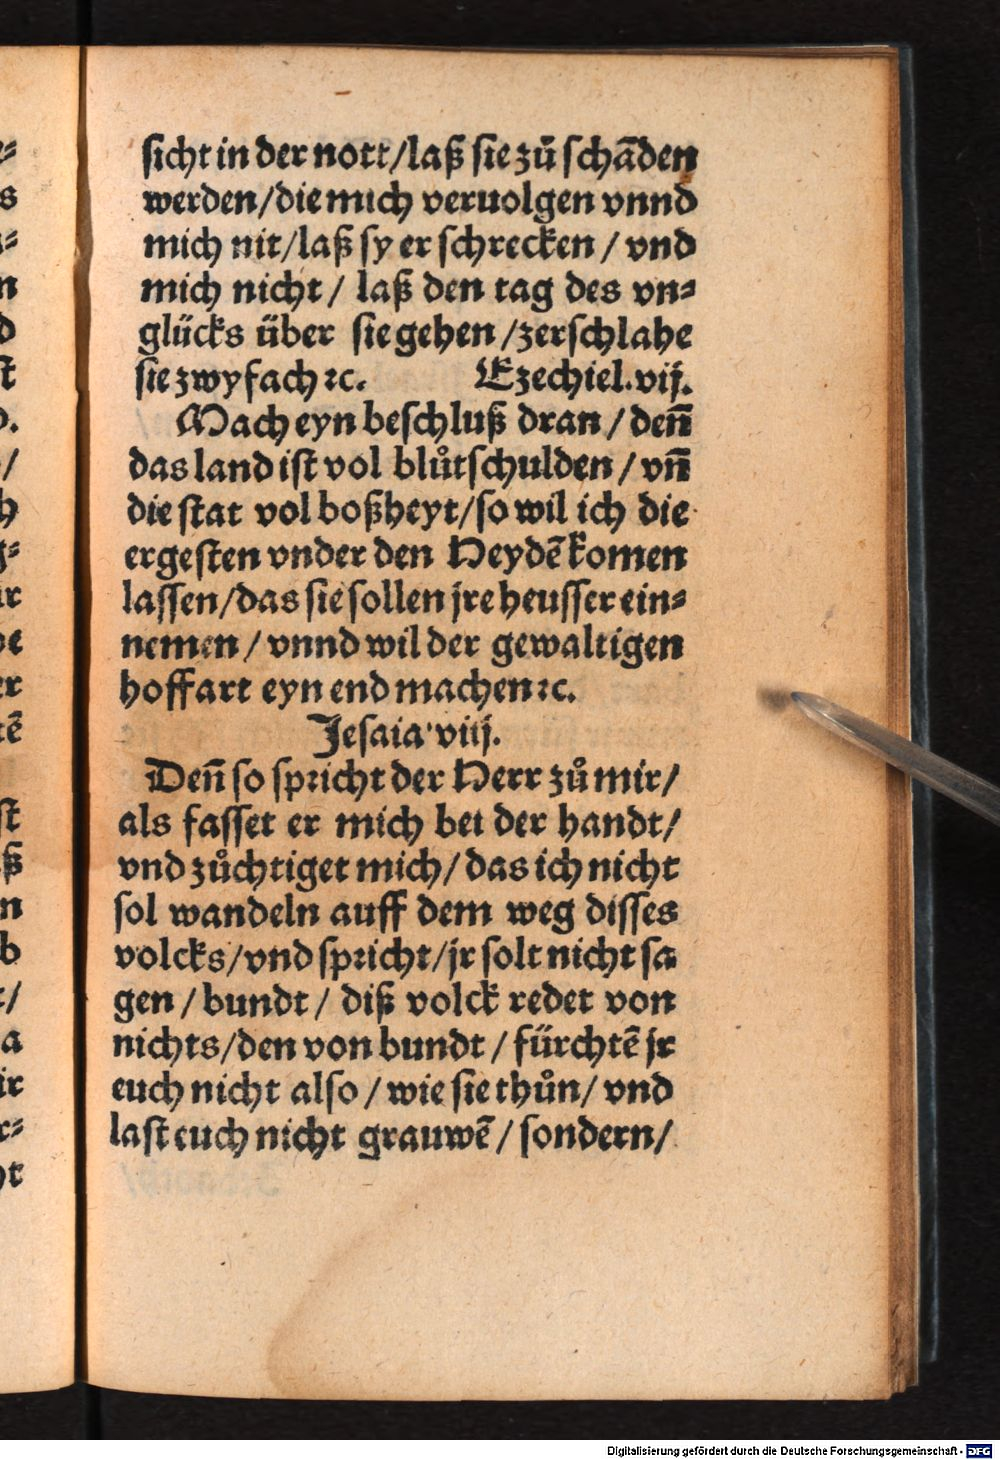 sicht in der nott/laß sie zů schādẽn
werden/die mich veruolgen vnnd
mich nit/laß sy er schrecken / vnd
mich nicht / laß den tag des vn⸗
glücks über sie gehen /zerschlahe
sie zwyfach ꝛc. Ezechiel.vij.
Mach eyn beschluß dran / deñ
das land ist vol blůtschulden / vñ
die stat vol boßheyt/so wil ich die
ergesten vnder den Heydẽ komen
lassen/das sie sollen jre heusser ein⸗
nemen / vnnd wil der gewaltigen
hoffart eyn end machen ꝛc.
Jesaia viij.
Deñ so spꝛicht der Herr zů mir/
als fasset er mich bei der handt/
vnd zůchtiget mich/ das ich nicht
sol wandeln auff dem weg disses
volcks/vnd spꝛicht/jr solt nicht sa
gen / bundt / diß volck redet von
nichts/den von bundt / fürchtẽ jr
euch nicht also / wie sie thůn/ vnd
last euch nicht grauwẽ / sondern/
Digitalisierung gefördert durch die Deutsche Forschungsgemeinschaft - DFG